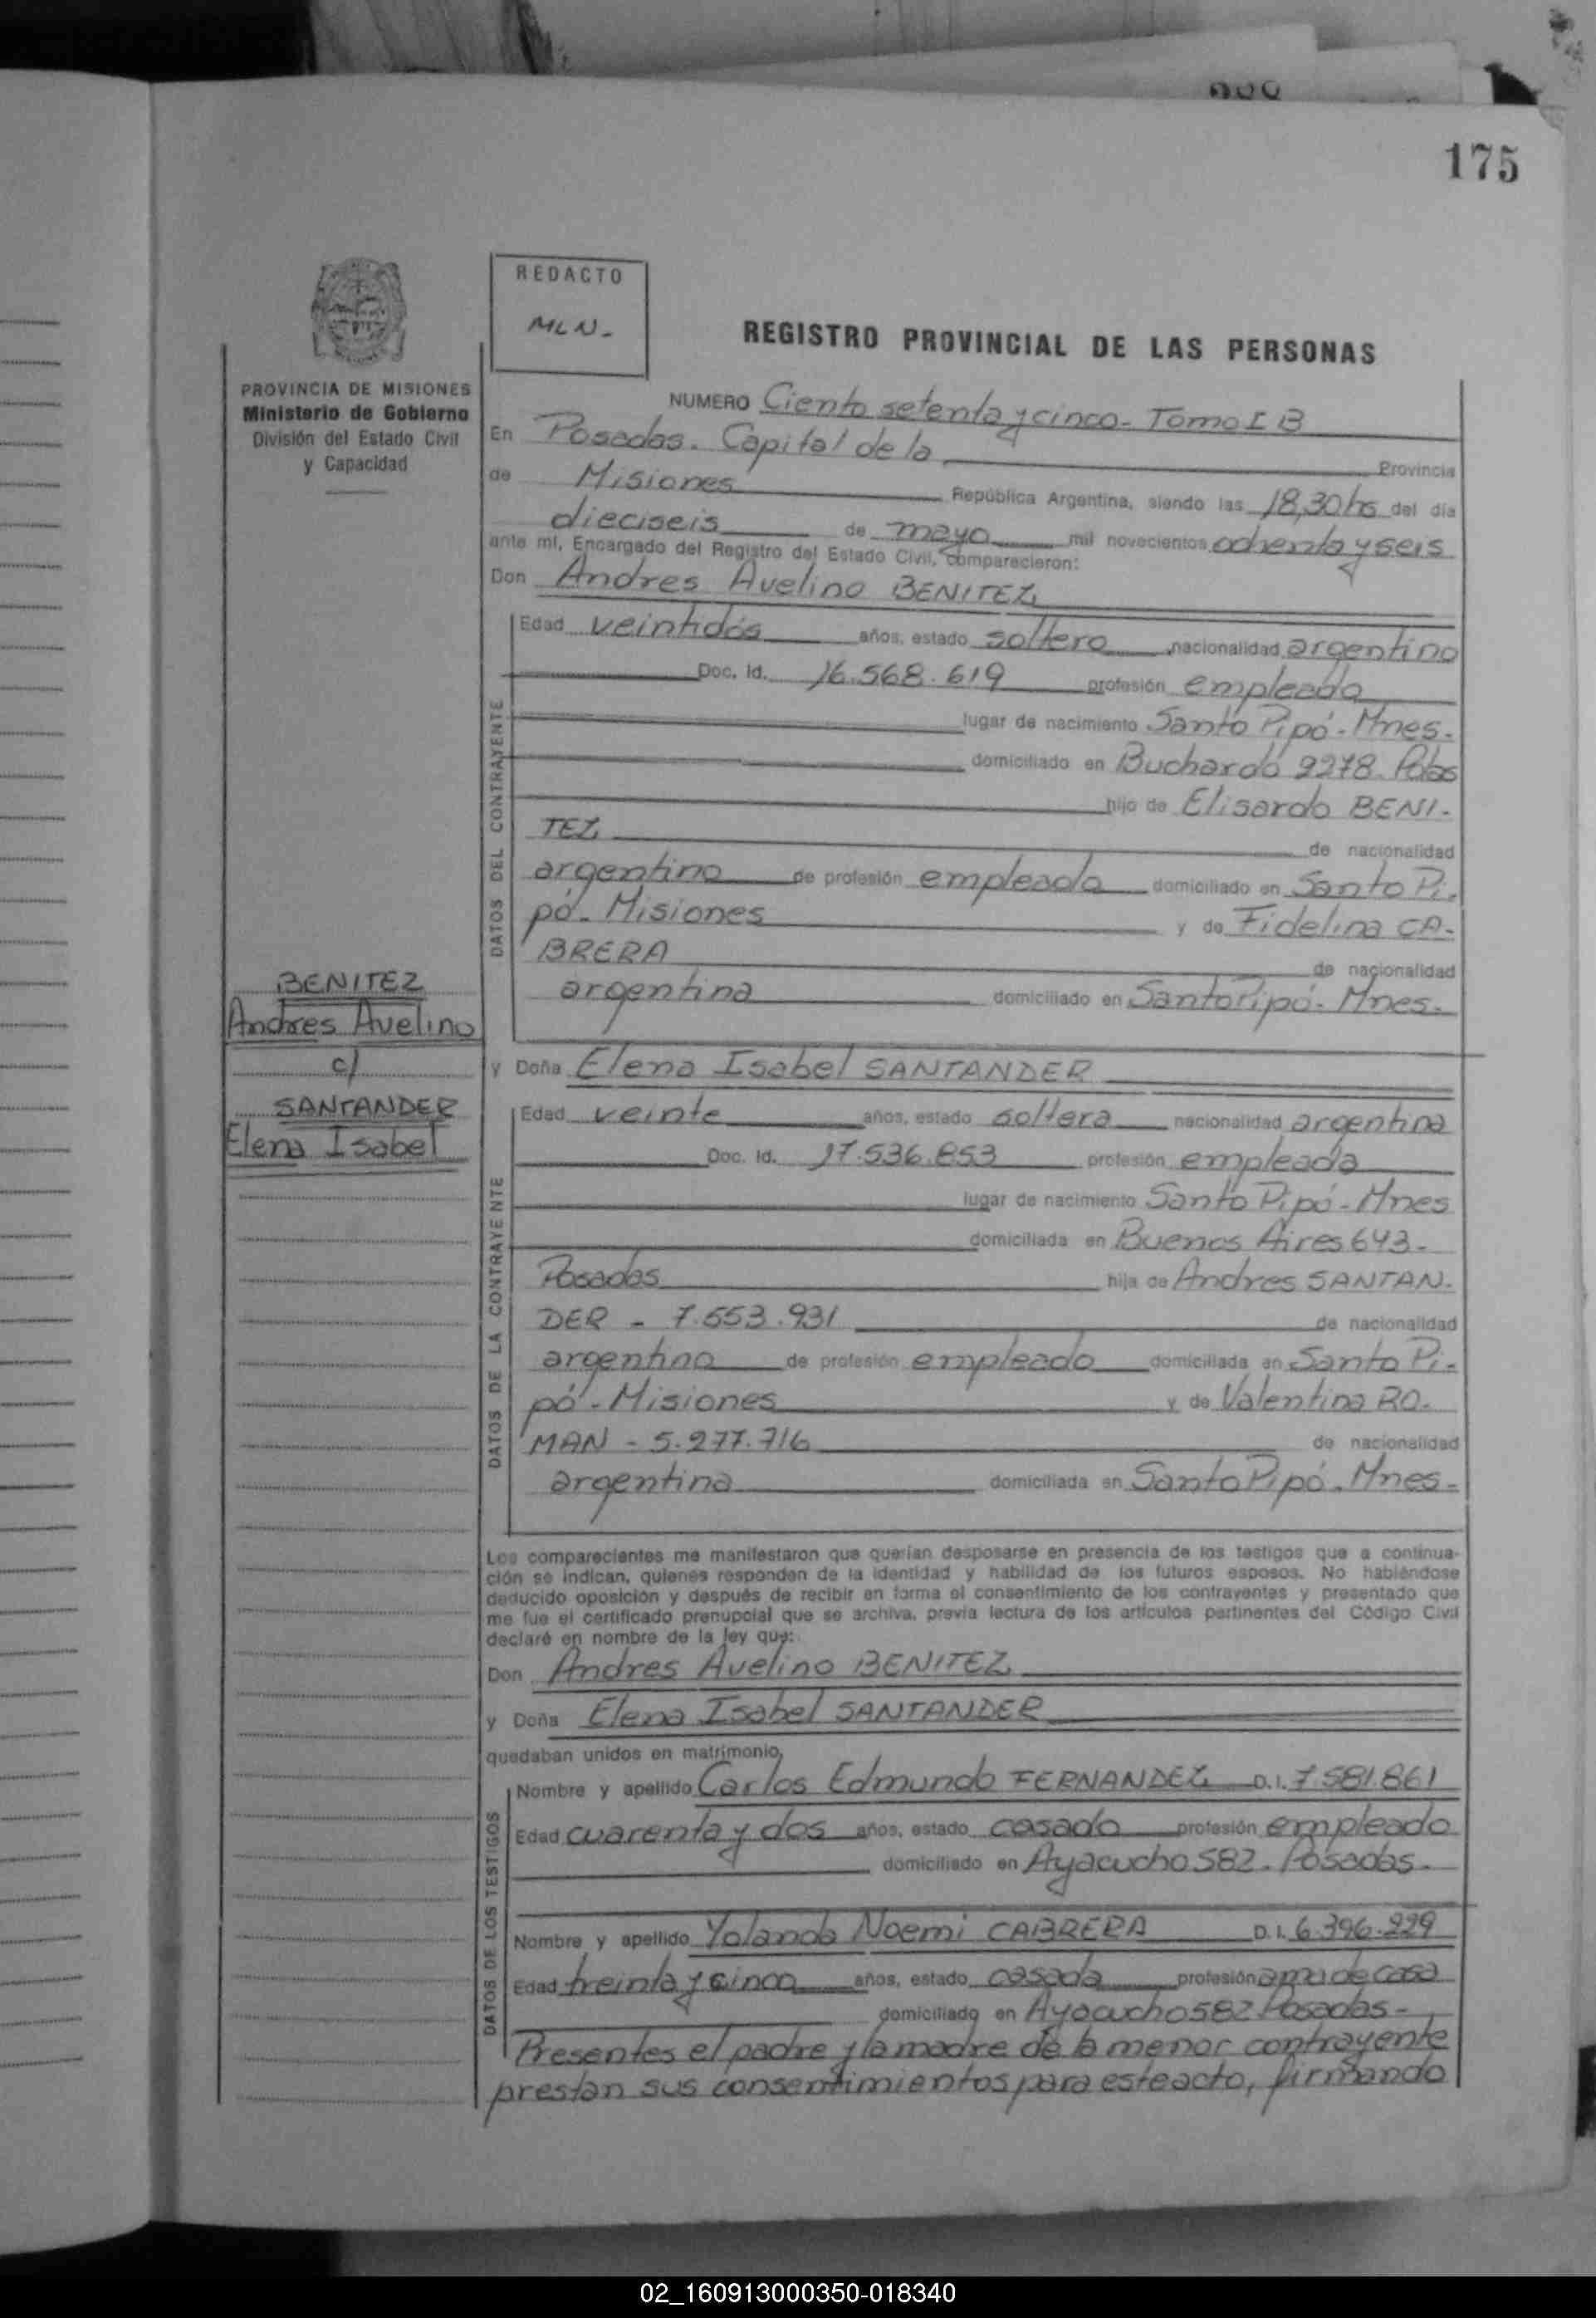 175
REDACTO
MLN-
REGISTRO PROVINCIAL DE LAS PERSONAS
PROVINCIA DE MISIONES
Ministerio de Gobierno
División del Estado Civil
y Capacidad
NUMERO Ciento setenta y cinco - Tomo I B
En Posadas. Capital de la Provincia
de Misiones República Argentina, siendo las 18,30 hs del día
dieciseis de mayo mil novecientos ochenta y seis
ante mí, Encargado del Registro del Estado Civil, comparecieron:
Don Andres Avelino BENITEZ
DATOS DEL CONTRAYENTE
Edad veintidós años, estado soltero nacionalidad argentino
Doc. Id. 16.568.619 profesión empleado
lugar de nacimiento Santo Pipó - Mnes.
domiciliado en Buchardo 2278. Pdas
hijo de Elisardo BENI-
TEZ de nacionalidad
argentino de profesión empleado domiciliado en Santo Pi-
pó - Misiones y de Fidelina CA-
BRERA de nacionalidad
argentina domiciliado en Santo Pipó - Mnes.
BENITEZ
Andres Avelino
c/
SANTANDER
Elena Isabel
y Doña Elena Isabel SANTANDER
DATOS DE LA CONTRAYENTE
Edad veinte años, estado soltera nacionalidad argentina
Doc. Id. 17.536.853 profesión empleada
lugar de nacimiento Santo Pipó - Mnes
domiciliada en Buenos Aires 643 -
Posadas hija de Andres SANTAN-
DER - 7.553.931 de nacionalidad
argentino de profesión empleado domiciliada en Santo Pi-
pó - Misiones y de Valentina RO-
MAN - 5.277.716 de nacionalidad
argentina domiciliada en Santo Pipó. Mnes -
Los comparecientes me manifestaron que querían desposarse en presencia de los testigos que a continua-
ción se indican, quienes responden de la identidad y habilidad de los futuros esposos. No habiéndose
deducido oposición y después de recibir en forma el consentimiento de los contrayentes y presentado que
me fue el certificado prenupcial que se archiva, previa lectura de los artículos pertinentes del Código Civil
declaré en nombre de la ley que:
Don Andres Avelino BENITEZ
y Doña Elena Isabel SANTANDER
quedaban unidos en matrimonio,
DATOS DE LOS TESTIGOS
Nombre y apellido Carlos Edmundo FERNANDEZ D.I. 7.581.861
Edad cuarenta y dos años, estado casado profesión empleado
domiciliado en Ayacucho 582 - Posadas -
Nombre y apellido Yolanda Noemi CABRERA D.I. 6.396.229
Edad treinta y cinco años, estado casada profesión ama de casa
domiciliado en Ayacucho 582 Posadas -
Presentes el padre y la madre de la menor contrayente
prestan sus consentimientos para este acto, firmando
02_160913000350-018340